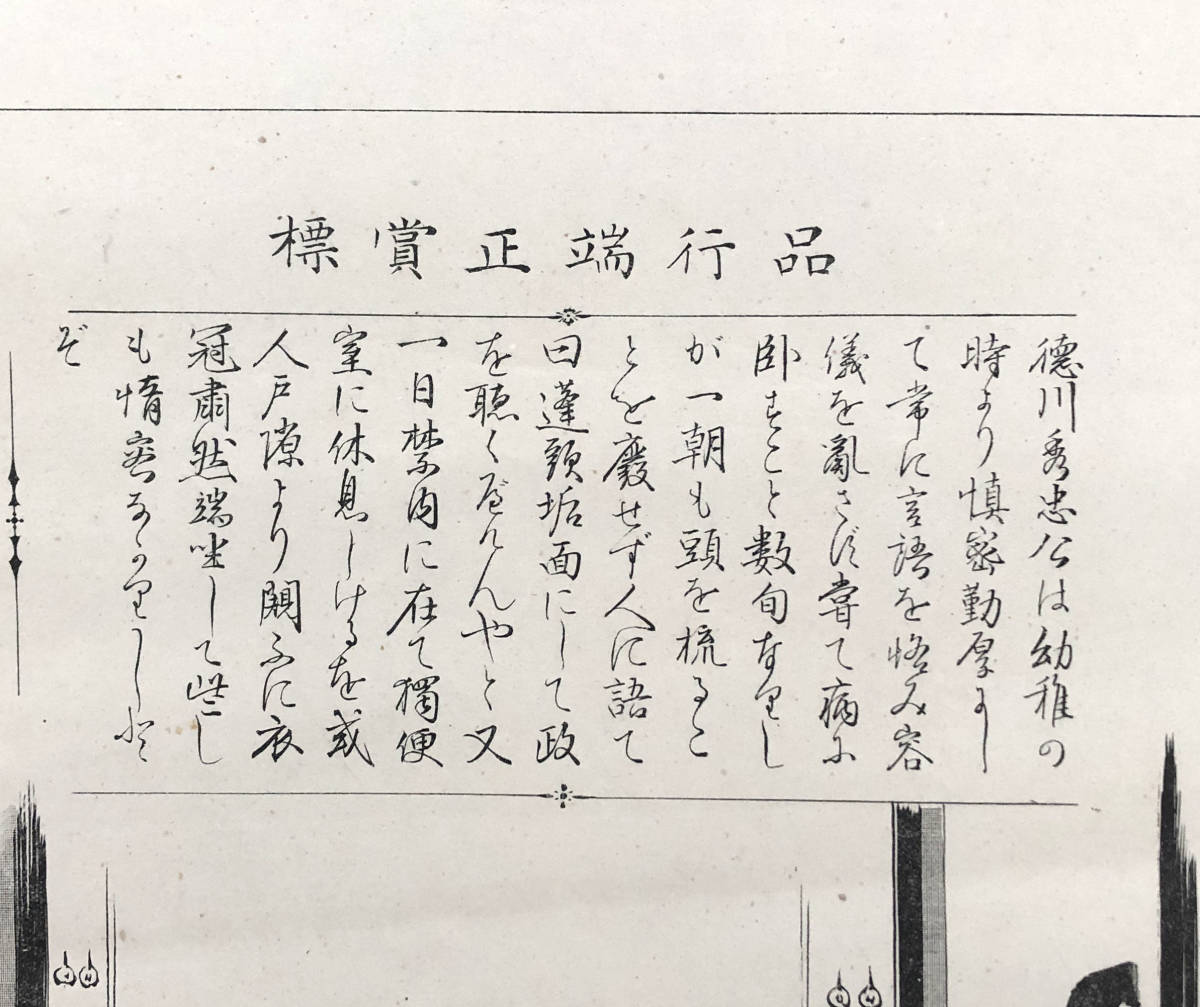 品行端正賞標
德川秀忠公は幼稚の
時より慎密勤厚にし
て常に言語を恪み容
儀を亂さず嘗て病に
臥すこと数旬なりし
が一朝も頭を梳るこ
とを廢せず人に語て
曰蓬頭垢面にして政
を聴くべけんやと又
一日禁内に在て獨便
室に休息しけるを或
人戸隙より闚ふに衣
冠肅然端坐して些し
も惰容なかりしと
ぞ